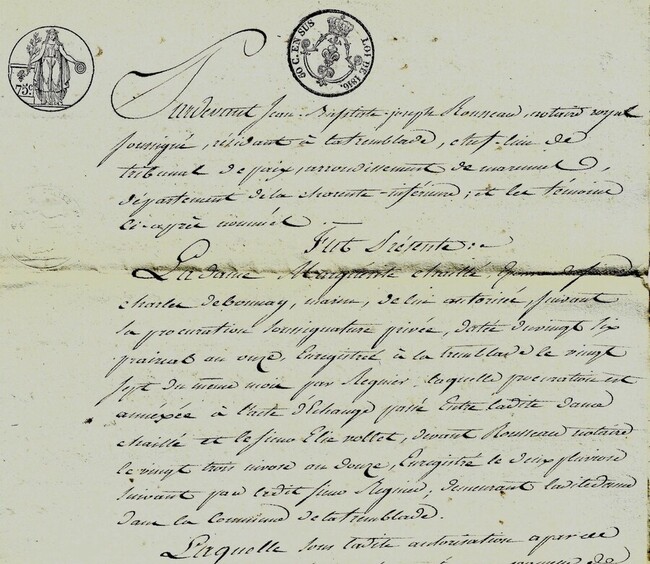 75c
60 C. EN SUS
LOI DE 1816.
Pardevant Jean-Baptiste-joseph Rousseau, notaire royal
soussigné, résidant à La tremblade, chef-lieu de
tribunal de paix, arrondissement de marennes,
département de la charente-inférieure; et les témoins
ci-après nommés.
Fut Présente:
La dame Marguerite chaillé
charles debonnay, marin, de lui autorisée, suivant
sa procuration soussignature privée, datée du vingt six
prairial an onze, Enregistrée à la tremblade le vingt
sept du même mois par Regnier, laquelle procuration est
annéxée à l'acte d'Echange passé Entre ladite dame
chaillé et le sieur Elie vollet, devant Rousseau notaire
le vingt trois nivose an douze, Enregistré le deux pluviose
suivant par ledit sieur Regnier; demeurant ladite dame
dans la Commune de la tremblade.
Laquelle sous ladite autorisation a par ce